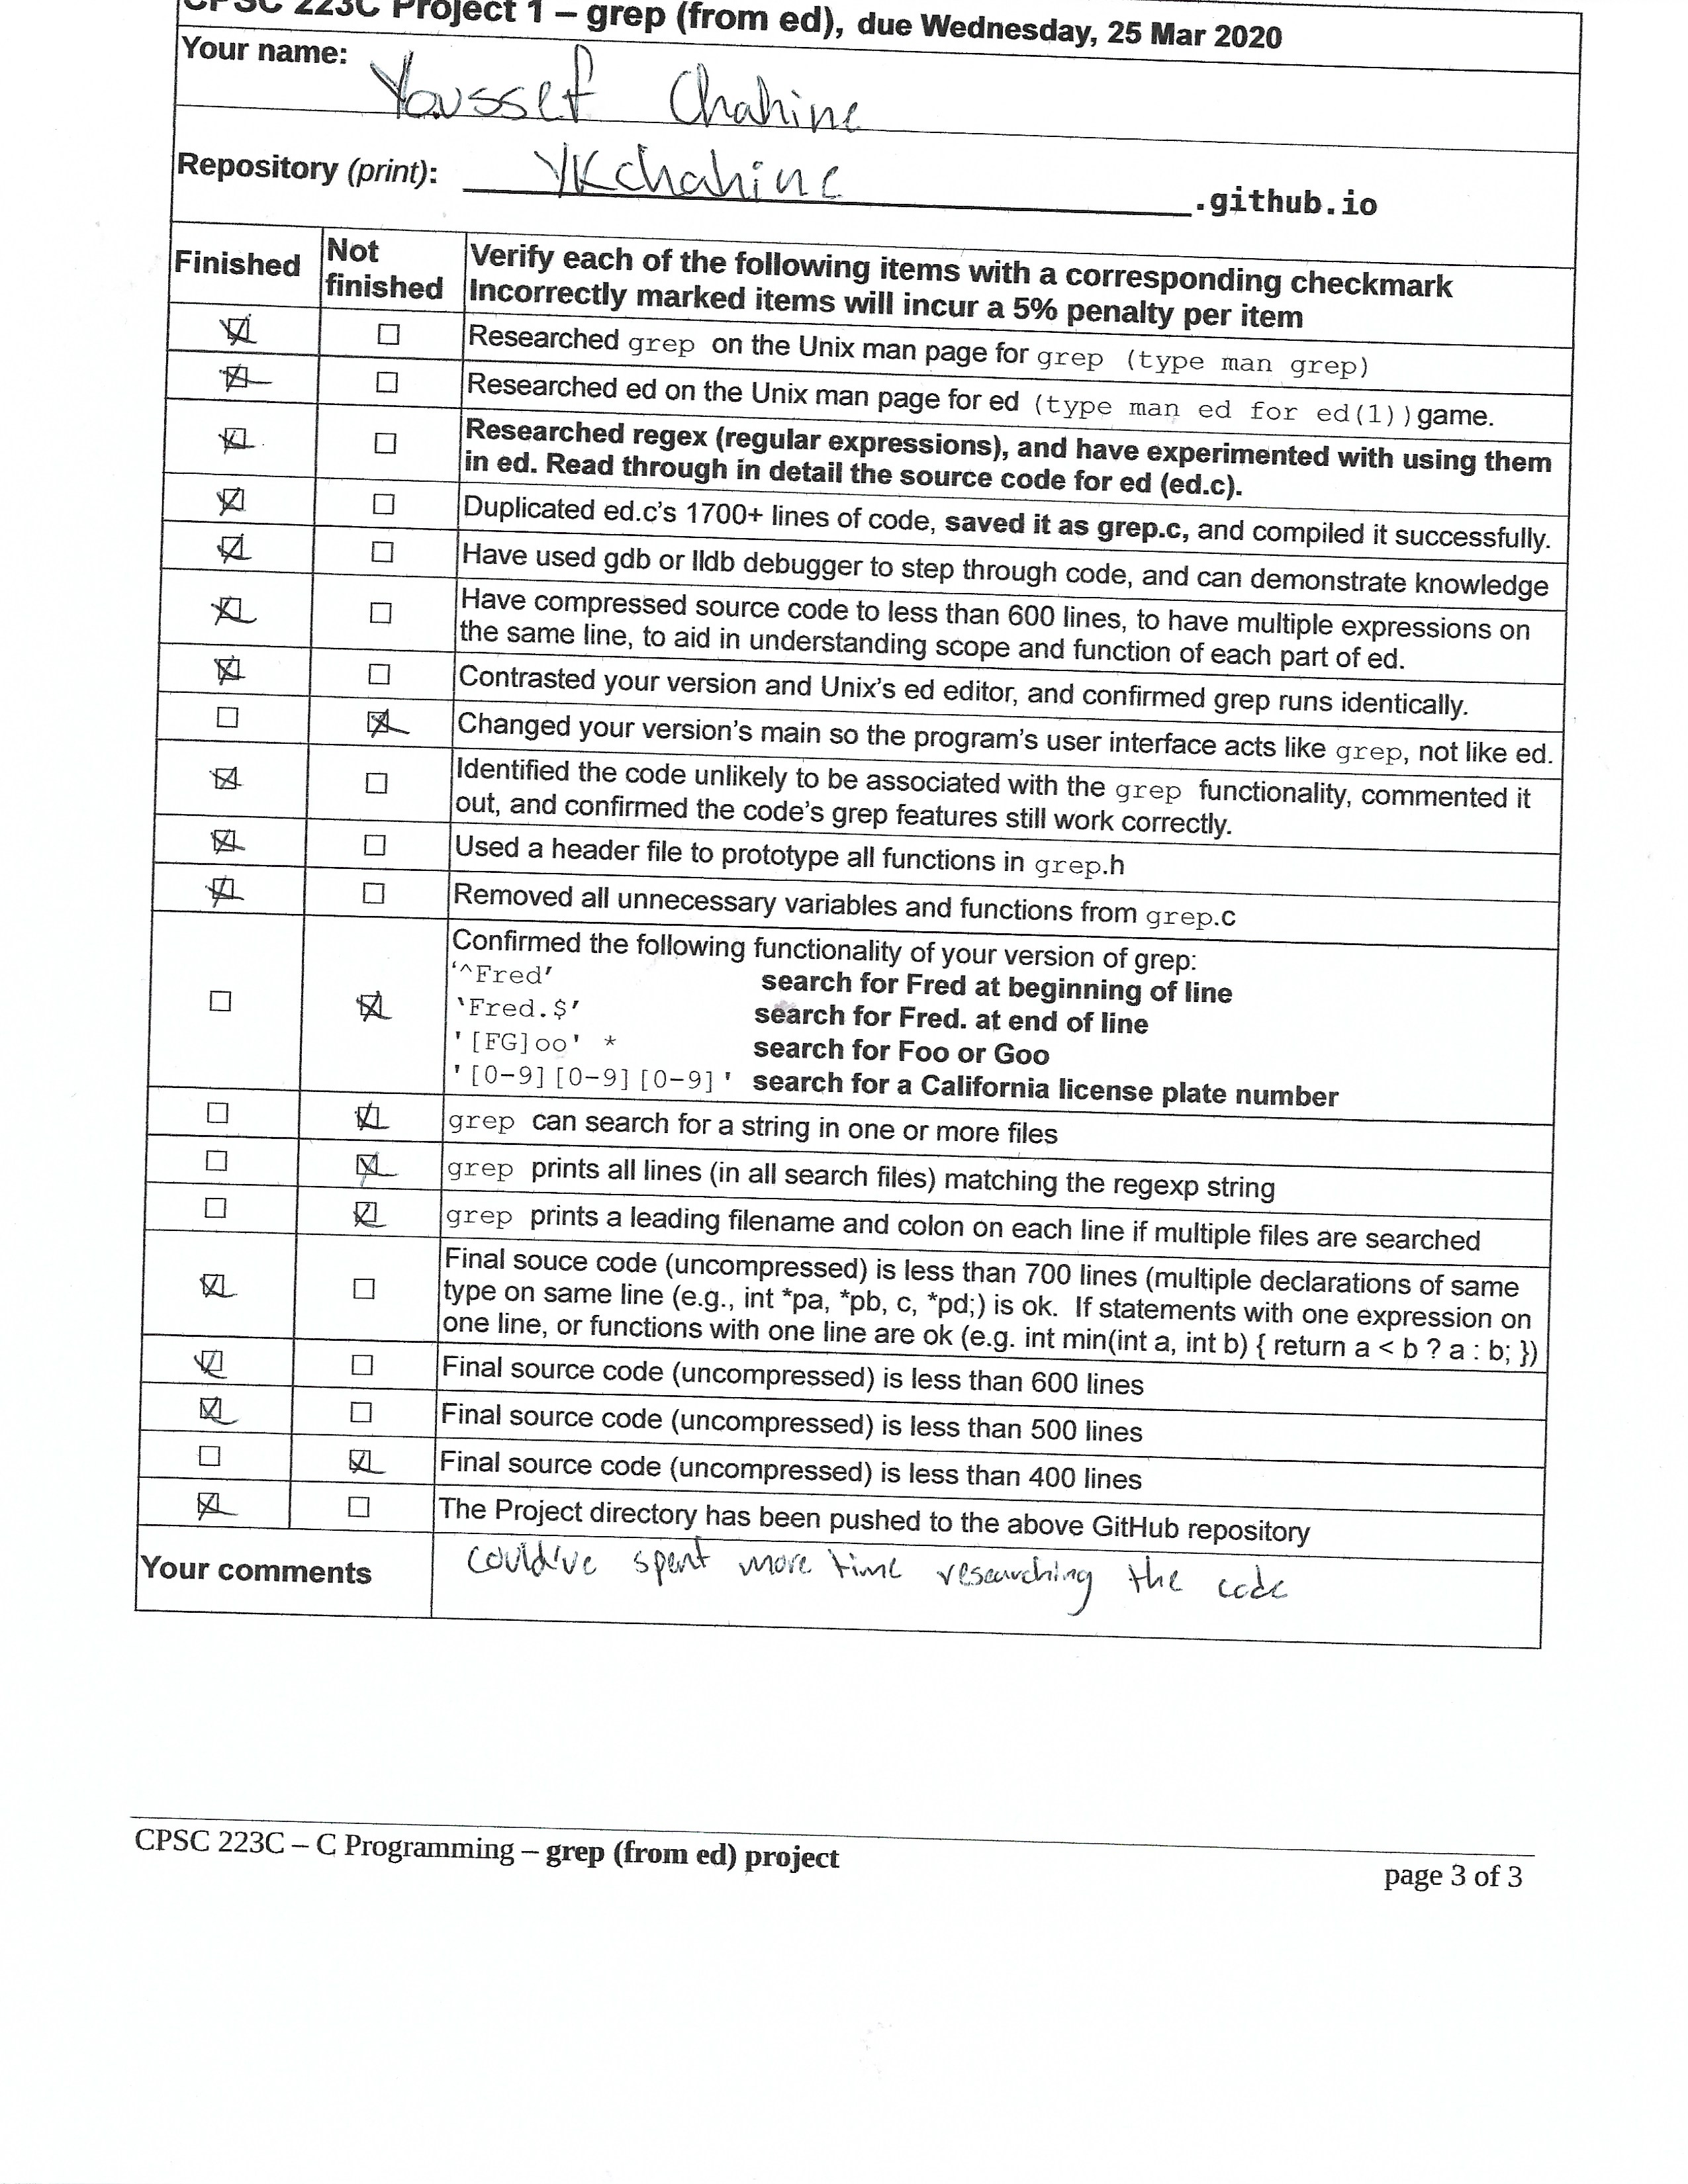 CPSC 223C Project 1 – grep (from ed), due Wednesday, 25 Mar 2020
Your name: Youssef Chahine
Repository (print): YKchahine .github.io
Finished Not finished Verify each of the following items with a corresponding checkmark
Incorrectly marked items will incur a 5% penalty per item
☒ ☐ Researched grep on the Unix man page for grep (type man grep)
☒ ☐ Researched ed on the Unix man page for ed (type man ed for ed(1)) game.
☒ ☐ Researched regex (regular expressions), and have experimented with using them
in ed. Read through in detail the source code for ed (ed.c).
☒ ☐ Duplicated ed.c's 1700+ lines of code, saved it as grep.c, and compiled it successfully.
☒ ☐ Have used gdb or lldb debugger to step through code, and can demonstrate knowledge
☒ ☐ Have compressed source code to less than 600 lines, to have multiple expressions on
the same line, to aid in understanding scope and function of each part of ed.
☒ ☐ Contrasted your version and Unix's ed editor, and confirmed grep runs identically.
☐ ☒ Changed your version's main so the program's user interface acts like grep, not like ed.
☒ ☐ Identified the code unlikely to be associated with the grep functionality, commented it
out, and confirmed the code's grep features still work correctly.
☒ ☐ Used a header file to prototype all functions in grep.h
☒ ☐ Removed all unnecessary variables and functions from grep.c
☐ ☒ Confirmed the following functionality of your version of grep:
‘^Fred’ search for Fred at beginning of line
‘Fred.$’ search for Fred. at end of line
'[FG]oo' * search for Foo or Goo
'[0-9][0-9][0-9]' search for a California license plate number
☐ ☒ grep can search for a string in one or more files
☐ ☒ grep prints all lines (in all search files) matching the regexp string
☐ ☒ grep prints a leading filename and colon on each line if multiple files are searched
☒ ☐ Final souce code (uncompressed) is less than 700 lines (multiple declarations of same
type on same line (e.g., int *pa, *pb, c, *pd;) is ok. If statements with one expression on
one line, or functions with one line are ok (e.g. int min(int a, int b) { return a < b ? a : b; })
☒ ☐ Final source code (uncompressed) is less than 600 lines
☒ ☐ Final source code (uncompressed) is less than 500 lines
☐ ☒ Final source code (uncompressed) is less than 400 lines
☒ ☐ The Project directory has been pushed to the above GitHub repository
Your comments could've spent more time researching the code
CPSC 223C – C Programming – grep (from ed) project
page 3 of 3